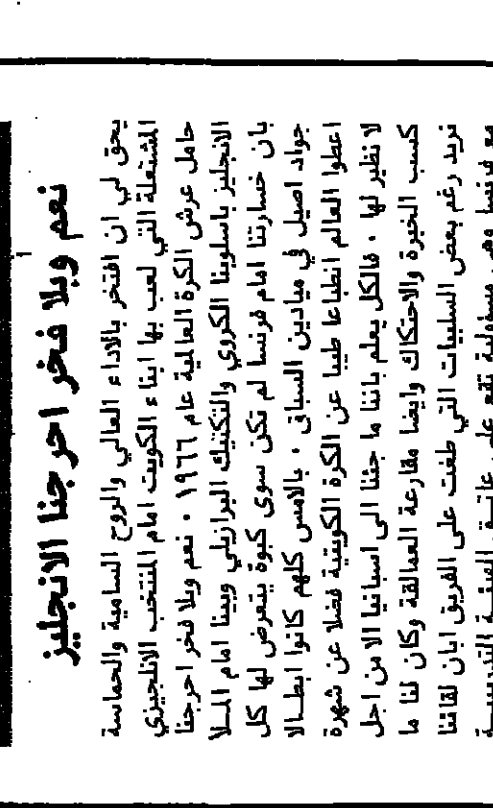 نعم وبلا فخر احرجنا الانجليز
يحق لي ان افتخر بالاداء العالي والروح السامية والحماسة
المشتعلة التي لعب بها ابناء الكويت امام المنتخب الانجليزي
حامل عرش الكرة العالمية عام ١٩٦٦ . نعم وبلا فخر احرجنا
الانجليز باسلوبنا الكروي والتكتيك البرازيلي وبينا امام الملأ
بان خسارتنا امام فرنسا لم تكن سوى كبوة يتعرض لها كل
جواد اصيل في ميادين السباق . بالامس كلهم كانوا ابطالا
اعطوا العالم انطباعا طيبا عن الكرة الكويتية فضلا عن شهرة
لا نظير لها . فالكل يعلم باننا ما جئنا الى اسبانيا الا من اجل
كسب الخبرة والاحتكاك وايضا مقارعة العمالقة وكان لنا ما
نريد رغم بعض السلبيات التي طغت على الفريق ابان لقائنا
مع فرنسا وهي مسؤولية تقع على عاتق